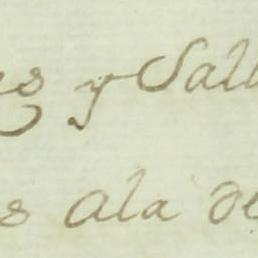 es y Sall
s ala de